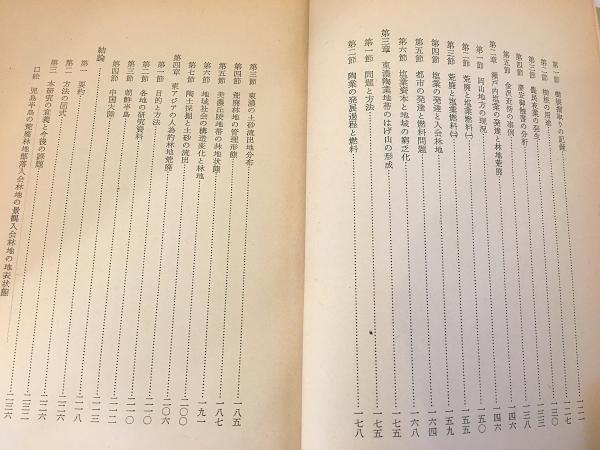 第一節 樹根掘取りの記録 一二一
第二節 樹根の用途 一二七
第三節 農民夜業の発生 一三〇
第四節 慶安御触書の分析 一三三
第五節 金沢近傍の事例 一四六
第二章 瀬戸内塩業の発達と林地荒廃 一四六
第一節 岡山地方の現況 一五〇
第二節 荒廃と塩業燃料㈠
第三節 荒廃と塩業燃料㈡ 一五九
第四節 塩業の発達と入会林地 一六四
第五節 都市の発達と燃料問題 一六八
第六節 塩業資本と地域の窮乏化 一七五
第三章 東濃陶業地帯のはげ山の形成 一七五
第一節 問題と方法 一七五
第二節 陶業の発展過程と燃料 一七八
第三節 東濃の土砂流出地分布 一八五
第四節 荒廃林地の管理形態 一八七
第五節 美濃丘陵地帯の林地状態 一九一
第六節 地域社会の構造変化と林地
第七節 陶土採掘と土砂の流出 二〇〇
第四章 東アジアの人為的林地荒廃 二〇六
第一節 目的と方法
第二節 各地の研究資料 二一〇
第三節 朝鮮半島 二一〇
第四節 中国大陸 二一二
結論 二一三
第一 要約 二一六
第二 方法の図式 二二六
第三 本研究の意義と今後の課題 二三二
口絵 児島半島の荒廃林地部落入会林地の景観入会林地の地表状態 二三六